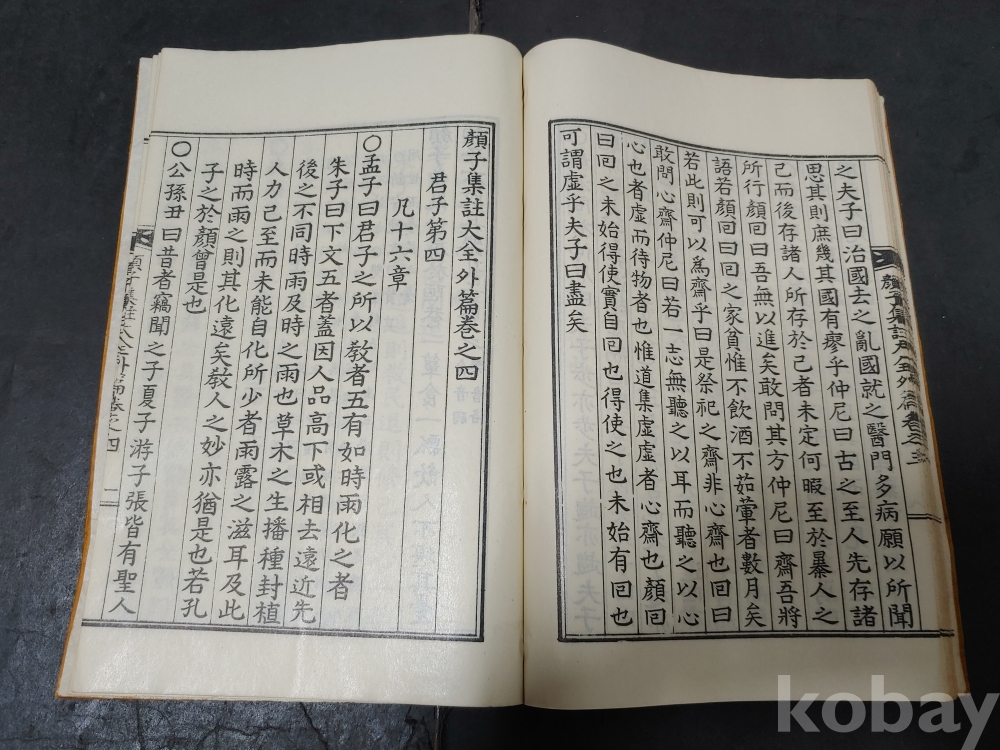 之夫子曰治國去之亂國就之醫門多病願以所聞
思其則庶幾其國有廖乎仲尼曰古之至人先存諸
己而後存諸人所存於己者未定何暇至於暴人之
所行顏回曰吾無以進矣敢問其方仲尼曰齋吾將
語若顏回曰回之家貧惟不飮酒不茹葷者數月矣
若此則可以爲齋乎曰是祭祀之齋非心齋也回曰
敢問心齋仲尼曰若一志無聽之以耳而聽之以心
心也者虛而待物者也惟道集虛虛者心齋也顏回
曰回之未始得使實自回也得使之也未始有回也
可謂虛乎夫子曰盡矣
顏子集註大全外篇卷之四
君子第四
凡十六章
○孟子曰君子之所以敎者五有如時雨化之者
朱子曰下文五者蓋因人品高下或相去遠近先
後之不同時雨及時之雨也草木之生播種封植
人力已至而未能自化所少者雨露之滋耳及此
時而雨之則其化遠矣敎人之妙亦猶是也若孔
子之於顏曾是也
○公孫丑曰昔者竊聞之子夏子游子張皆有聖人
顏子集註大全外篇卷之四
一
kobay